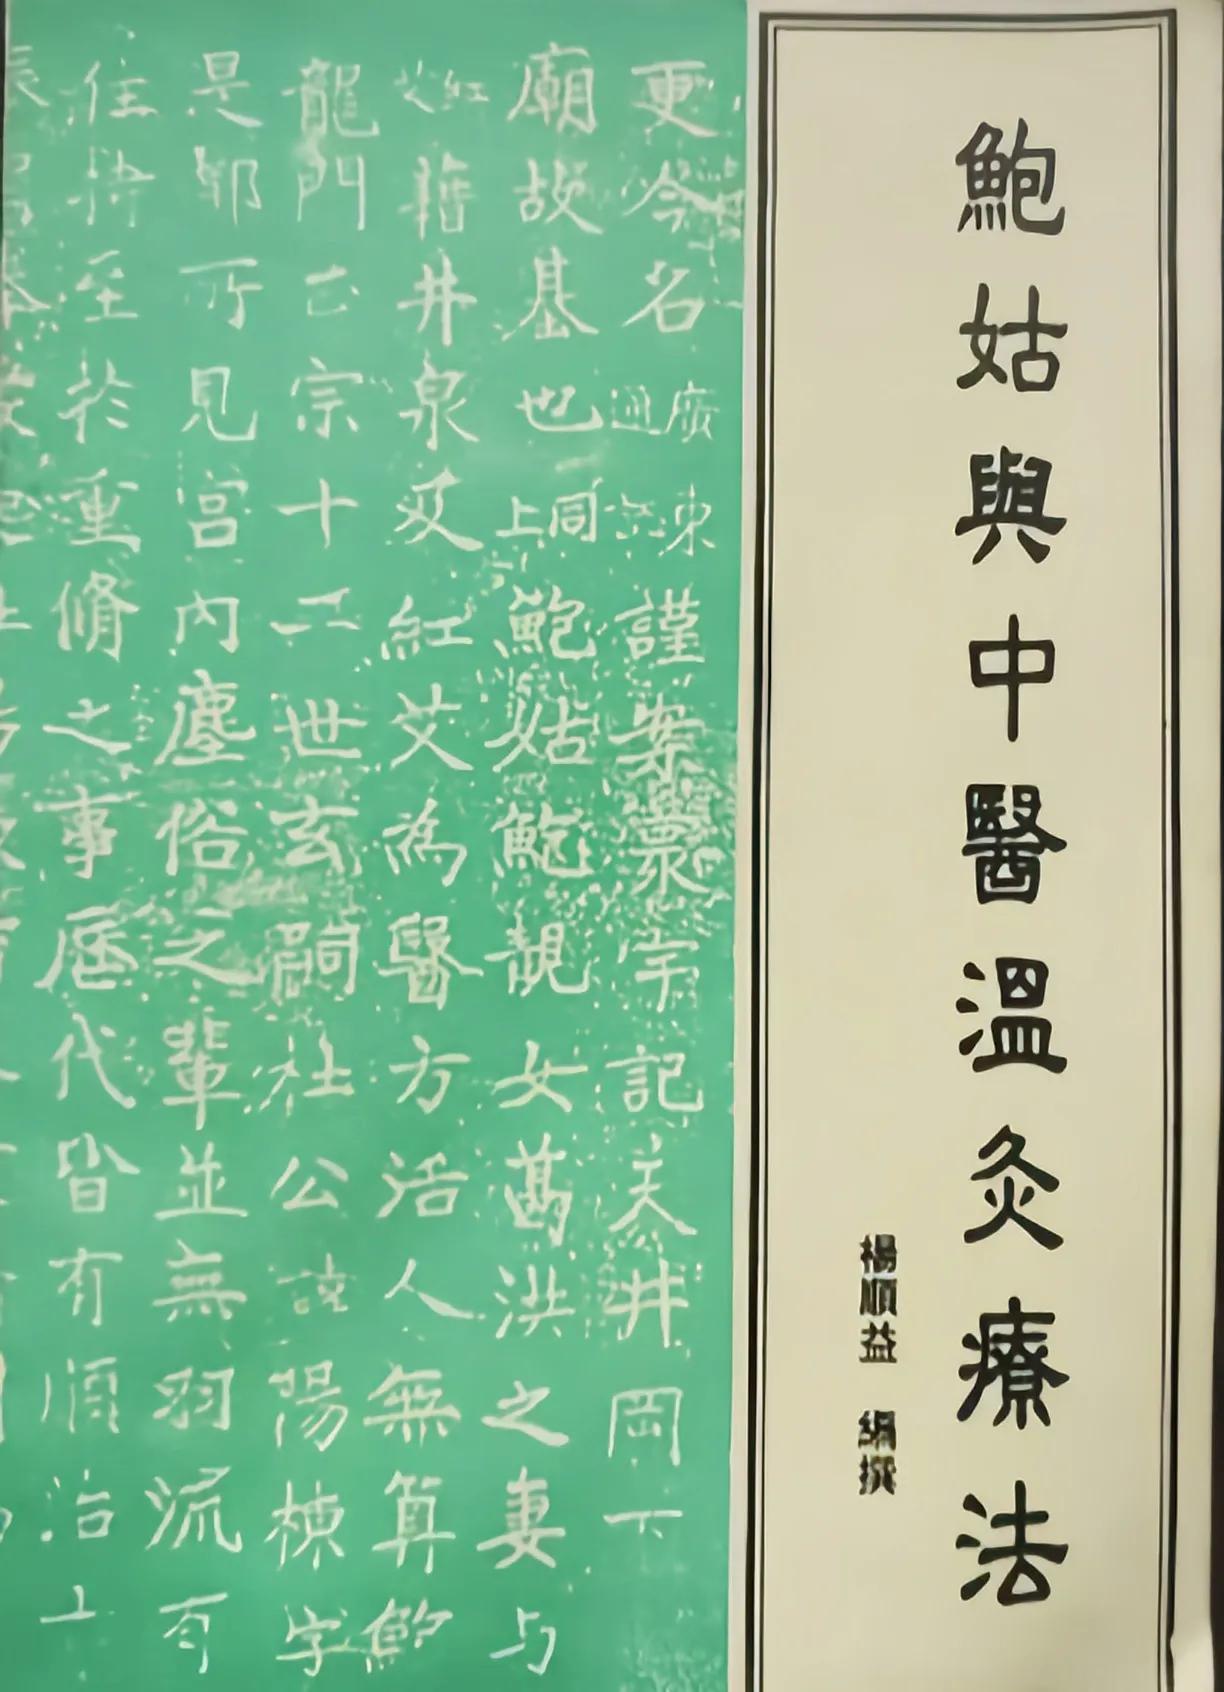 鮑姑與中醫溫灸療法
楊順益 編撰
更今名廣東通志謹案寰宇記天井岡下
廟故基也同上鮑姑鮑靚女葛洪之妻与
紅艾舊井泉及紅艾為醫方活人無算鮑
龍門正宗十二世玄嗣杜公諱陽棟字
是邨所見宮內塵俗之輩並無羽流有
住持至於重脩之事歷代皆有順治十